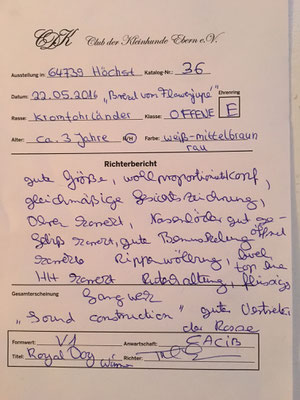 CdK Club der Kleinhunde Ebern e.V.
Ausstellung in: 64739 Höchst Katalog-Nr.: 36
Datum: 22.05.2016 "Brexl von Flowerjupe" Ehrenring
Rasse: Kromfohrländer Klasse: OFFENE E
Alter: ca. 3 Jahre R/H Farbe: weiß-mittelbraun
rau
Richterbericht
gute Größe, wohlproportioniert Kopf,
gleichmäßige Gesichtszeichnung,
Ohren korrekt, Nasenlöcher gut ge-
öffnet
Gebiß korrekt, gute Bemuskelung
korrekte Rippenwölbung, level
top line
HH korrekt Rutehaltung, flüssiges
Gesamterscheinung Gangwerk
"Sound construction" guter Vertreter
der Rasse
Formwert: V1 Anwartschaft: CACIB
Titel: Royal Dog Winner Richter: